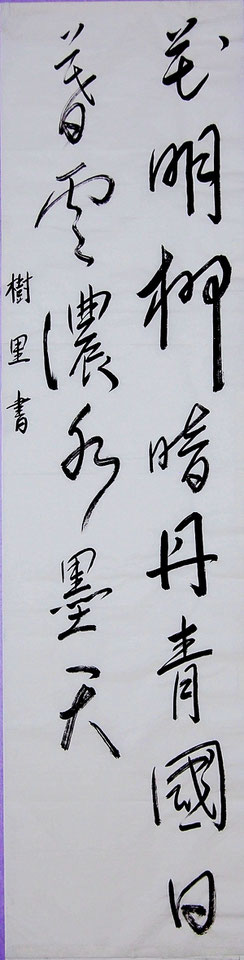 花明柳暗丹青國日
暮雲濃水墨天
樹里書